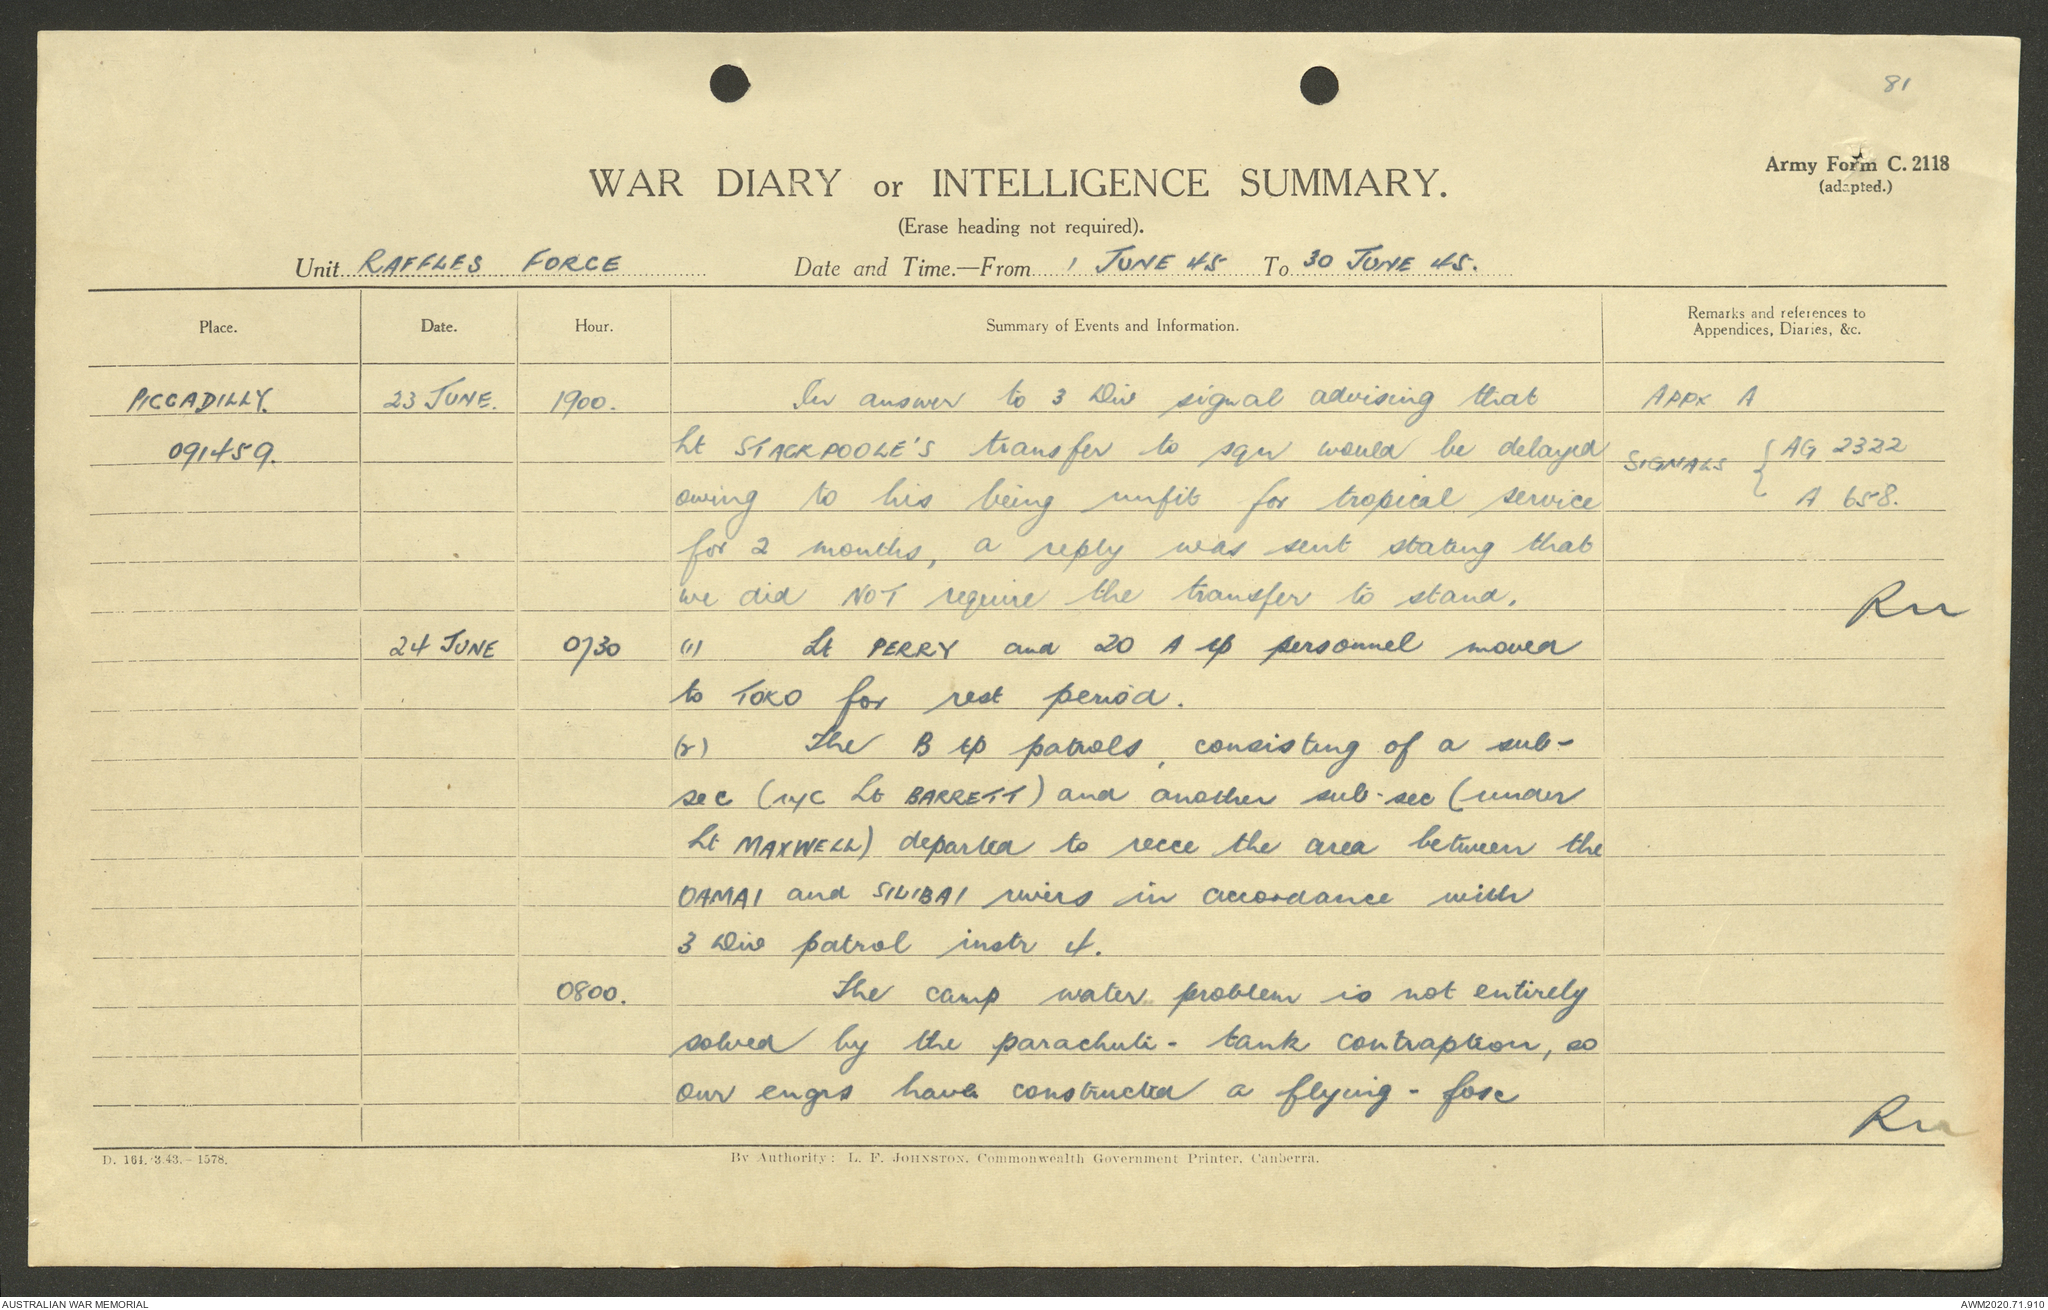 81
Army Form C. 2118
(adapted.)
WAR DIARY or INTELLIGENCE SUMMARY.
(Erase heading not required).
Unit RAFFLES FORCE Date and Time.—From 1 JUNE 45 To 30 JUNE 45.
Place. Date. Hour. Summary of Events and Information. Remarks and references to Appendices, Diaries, &c.
PICCADILLY. 23 JUNE. 1900. In answer to 3 Div signal advising that APPX A
091459. Lt STACKPOOLE'S transfer to sqn would be delayed SIGNALS { AG 2322
owing to his being unfit for tropical service A 658.
for 2 months, a reply was sent stating that
we did NOT require the transfer to stand.
24 JUNE 0730 (1) Lt PERRY and 20 A tp personnel moved
to TOKO for rest period.
(2) The B tp patrols, consisting of a sub-
sec (i/c Lt BARRETT) and another sub-sec (under
Lt MAXWELL) departed to recce the area between the
OAMAI and SILIBAI rivers in accordance with
3 Div patrol instr 4.
0800. The camp water problem is not entirely
solved by the parachute-tank contraption, so
our engrs have constructed a flying-fox
D. 164. 3.43.—1578. By Authority: L. F. JOHNSTON, Commonwealth Government Printer, Canberra.
AUSTRALIAN WAR MEMORIAL AWM2020.71.910